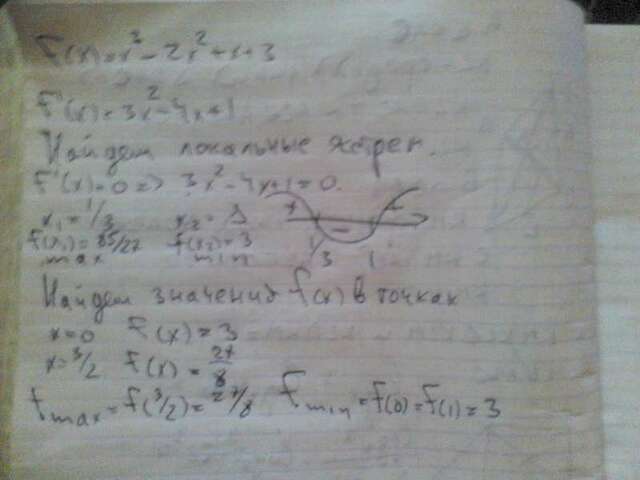 f(x)=x³-2x²+x+3
f'(x)=3x²-4x+1
Найдем локальные экстрем.
f'(x)=0=> 3x²-4x+1=0.
x₁=1/3 x₂=1 + - +
f(x₁)=85/27 f(x₂)=3 1/3 1
max min
Найдем значения f(x) в точках
x=0 f(x)=3
x=3/2 f(x)=27/8
fmax=f(3/2)=27/8 fmin=f(0)=f(1)=3